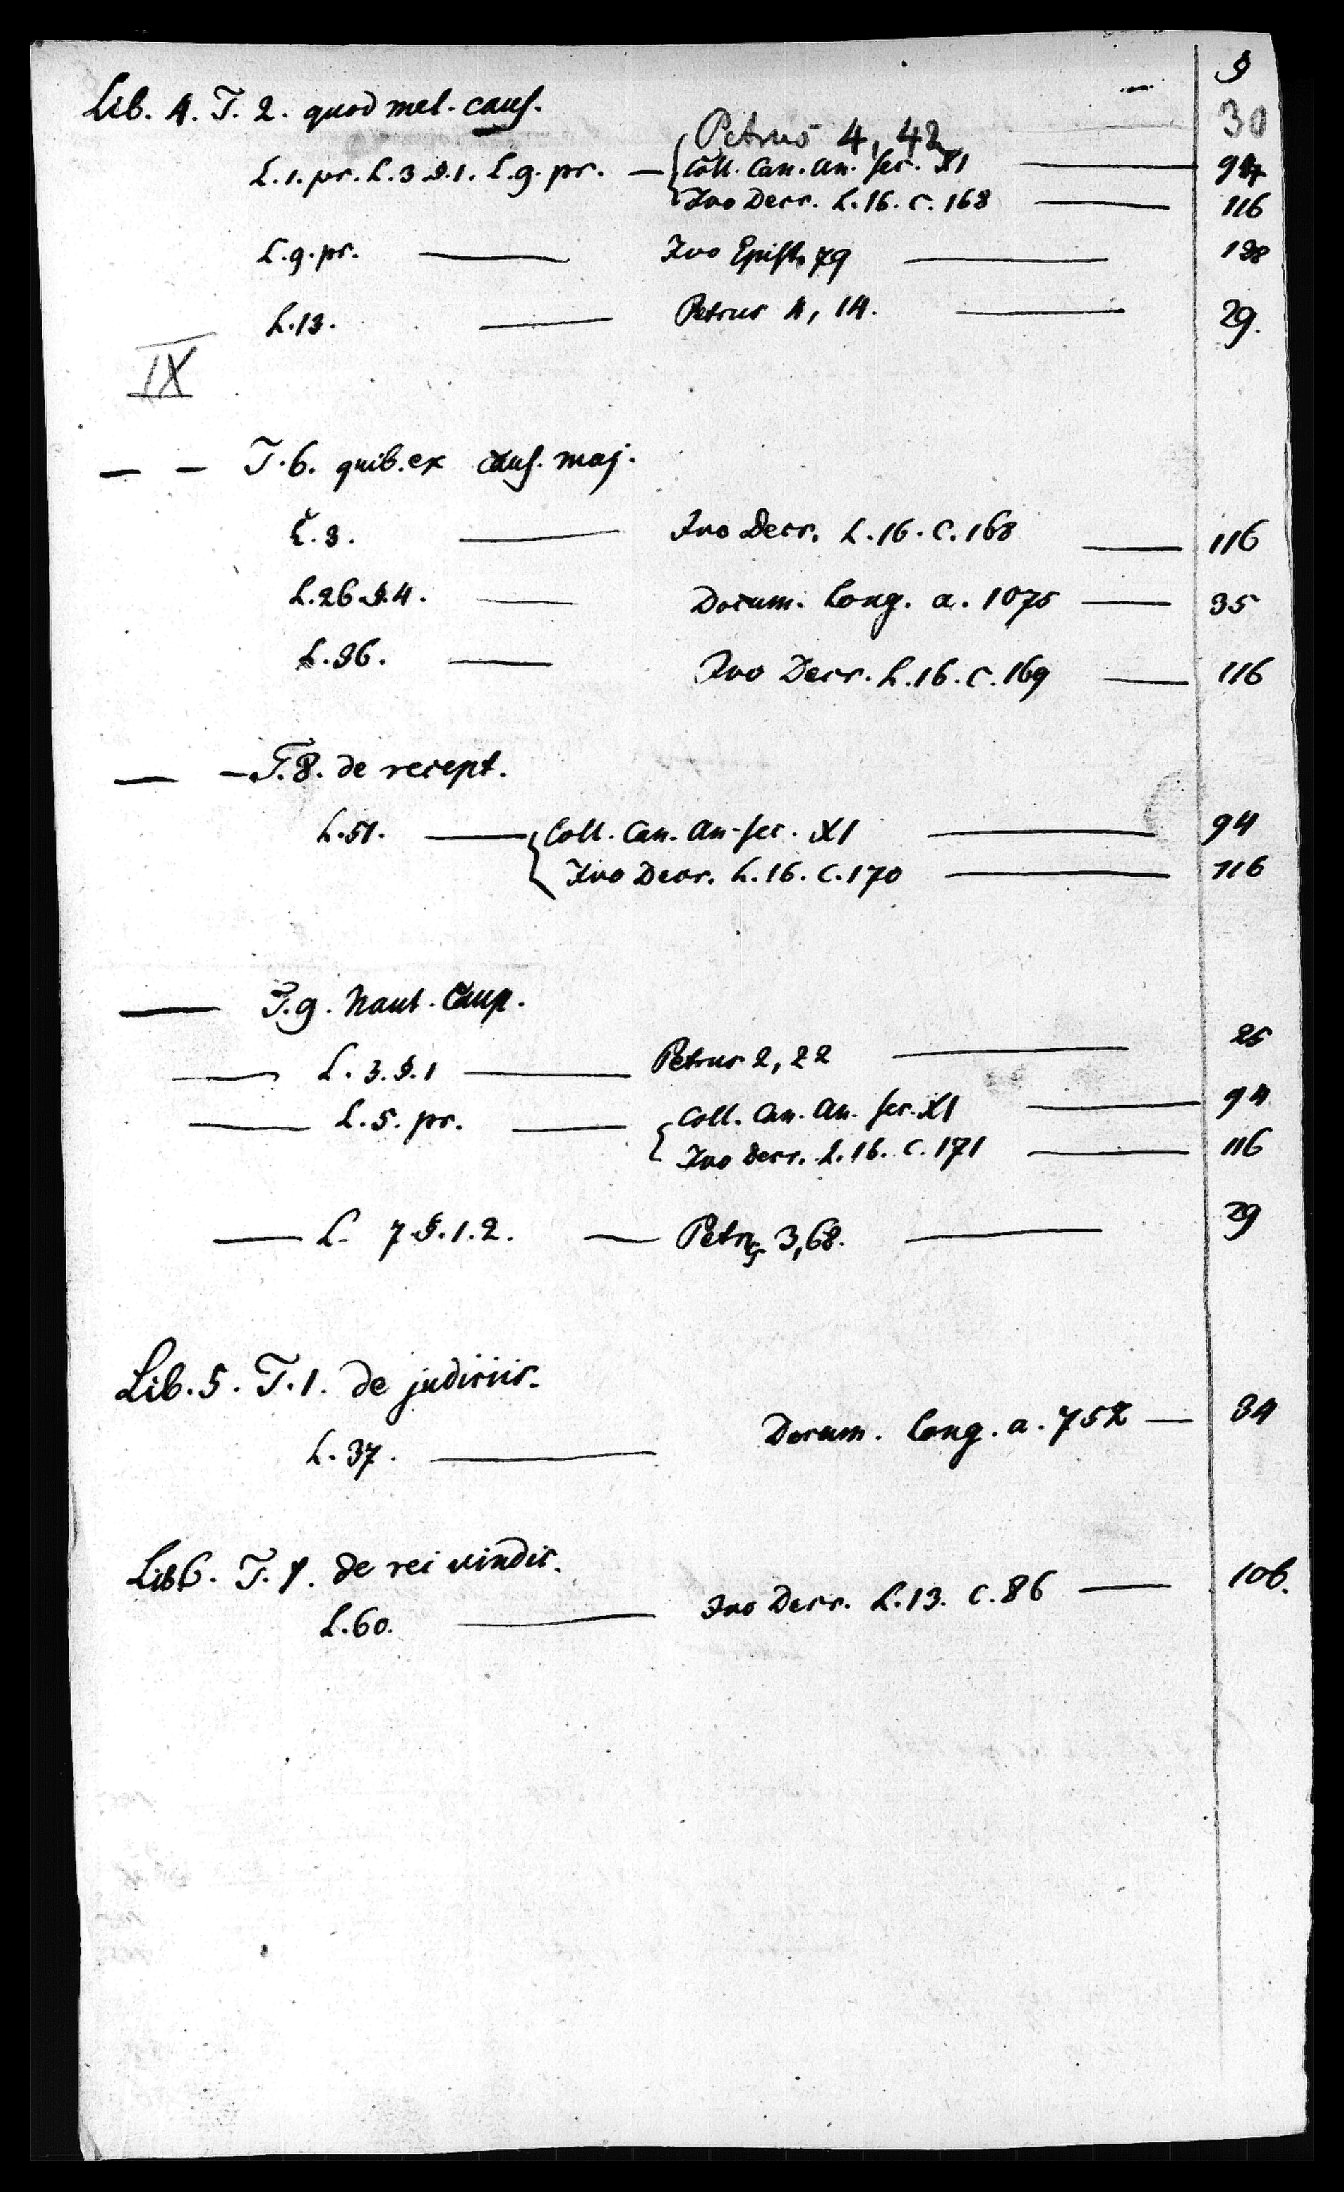 — §
Lib. 4. T. 2. quod met. caus.
Petrus 4, 42 30
L.1.pr. L.3.§.1. L.9.pr. — { Coll. Can. An. sec. XI — 94
Ivo Decr. L.16. c.168 — 116
L.9.pr. — Ivo Epist. 79 — 138
L.13. — Petrus 4, 14. — 29.
IX
— — T.6. quib. ex caus. maj.
L.3. — Ivo Decr. L.16. C.168 — 116
L.26.§.4. — Docum. Long. a. 1075 — 35
L.36. — Ivo Decr. L.16. c.169 — 116
— — T.8. de recept.
L.51. — { Coll. Can. An. sec. XI — 94
Ivo Decr. L.16. C.170 — 116
— T.9. Naut. Caup.
— L. 3.§.1 — Petrus 2, 22 — 25
— L.5. pr. — { Coll. Can. An. sec. XI — 94
Ivo Decr. L.16. C.171 — 116
— L. 7.§.1.2. — Petrus 3,68. — 29
Lib. 5. T.1. de judiciis.
L.37. — Docum. Long. a. 752 — 34
Lib 6. T.1. de rei vindic.
L.60. — Ivo Decr. L.13. C.86 — 106.